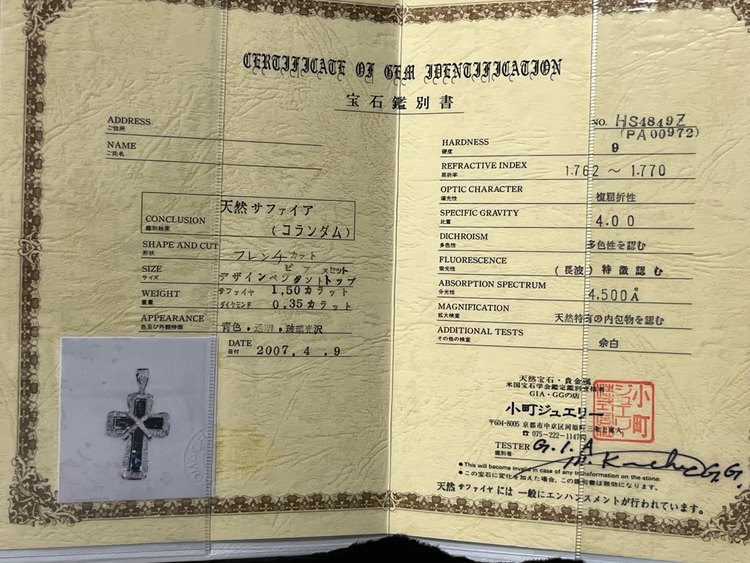 CERTIFICATE OF GEM IDENTIFICATION
宝石鑑別書
ADDRESS
ご住所
NAME
ご氏名
CONCLUSION
鑑別結果
天然サファイア
(コランダム)
SHAPE AND CUT
形状
フレンチカット
SIZE
サイズ
ピースセット
デザインペンダントトップ
WEIGHT
重量
サファイヤ 1,50カラット
ダイヤモンド 0.35カラット
APPEARANCE
色及び外観特徴
青色・透明・玻璃光沢
DATE
日付
2007,4,9
NO. HS4849Z
(PA00972)
HARDNESS
硬度
9
REFRACTIVE INDEX
屈折率
1.762 ~ 1.770
OPTIC CHARACTER
偏光性
複屈折性
SPECIFIC GRAVITY
比重
4.00
DICHROISM
多色性
多色性を認む
FLUORESCENCE
蛍光性
(長波) 特徴認む
ABSORPTION SPECTRUM
分光性
4,500Å
MAGNIFICATION
拡大検査
天然特有の内包物を認む
ADDITIONAL TESTS
その他の検査
余白
天然宝石・貴金属
米国宝石学会鑑定鑑別資格者
GIA・GGの店
小町ジュエリー
〒604-8005 京都市中京区河原町三条上東入
☎ 075-222-1147
小町
ジュエリー
TESTER
鑑別者
G.I.A
G.G.
●This will become invalid in case of any transformation on the stone.
●この宝石に変化を加えた場合、この鑑別書は無効になります。
天然サファイヤには一般にエンハンスメントが行われています。